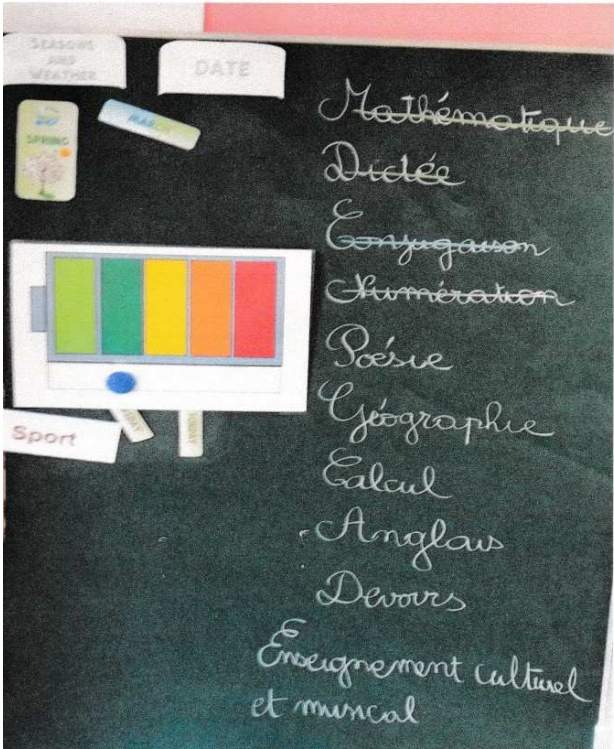 SEASONS
AND
WEATHER
DATE
SPRING
MARCH
Mathématique
Dictée
Conjugaison
Numération
Poésie
Géographie
Sport
Calcul
Anglais
Devoirs
Enseignement culturel
et musical